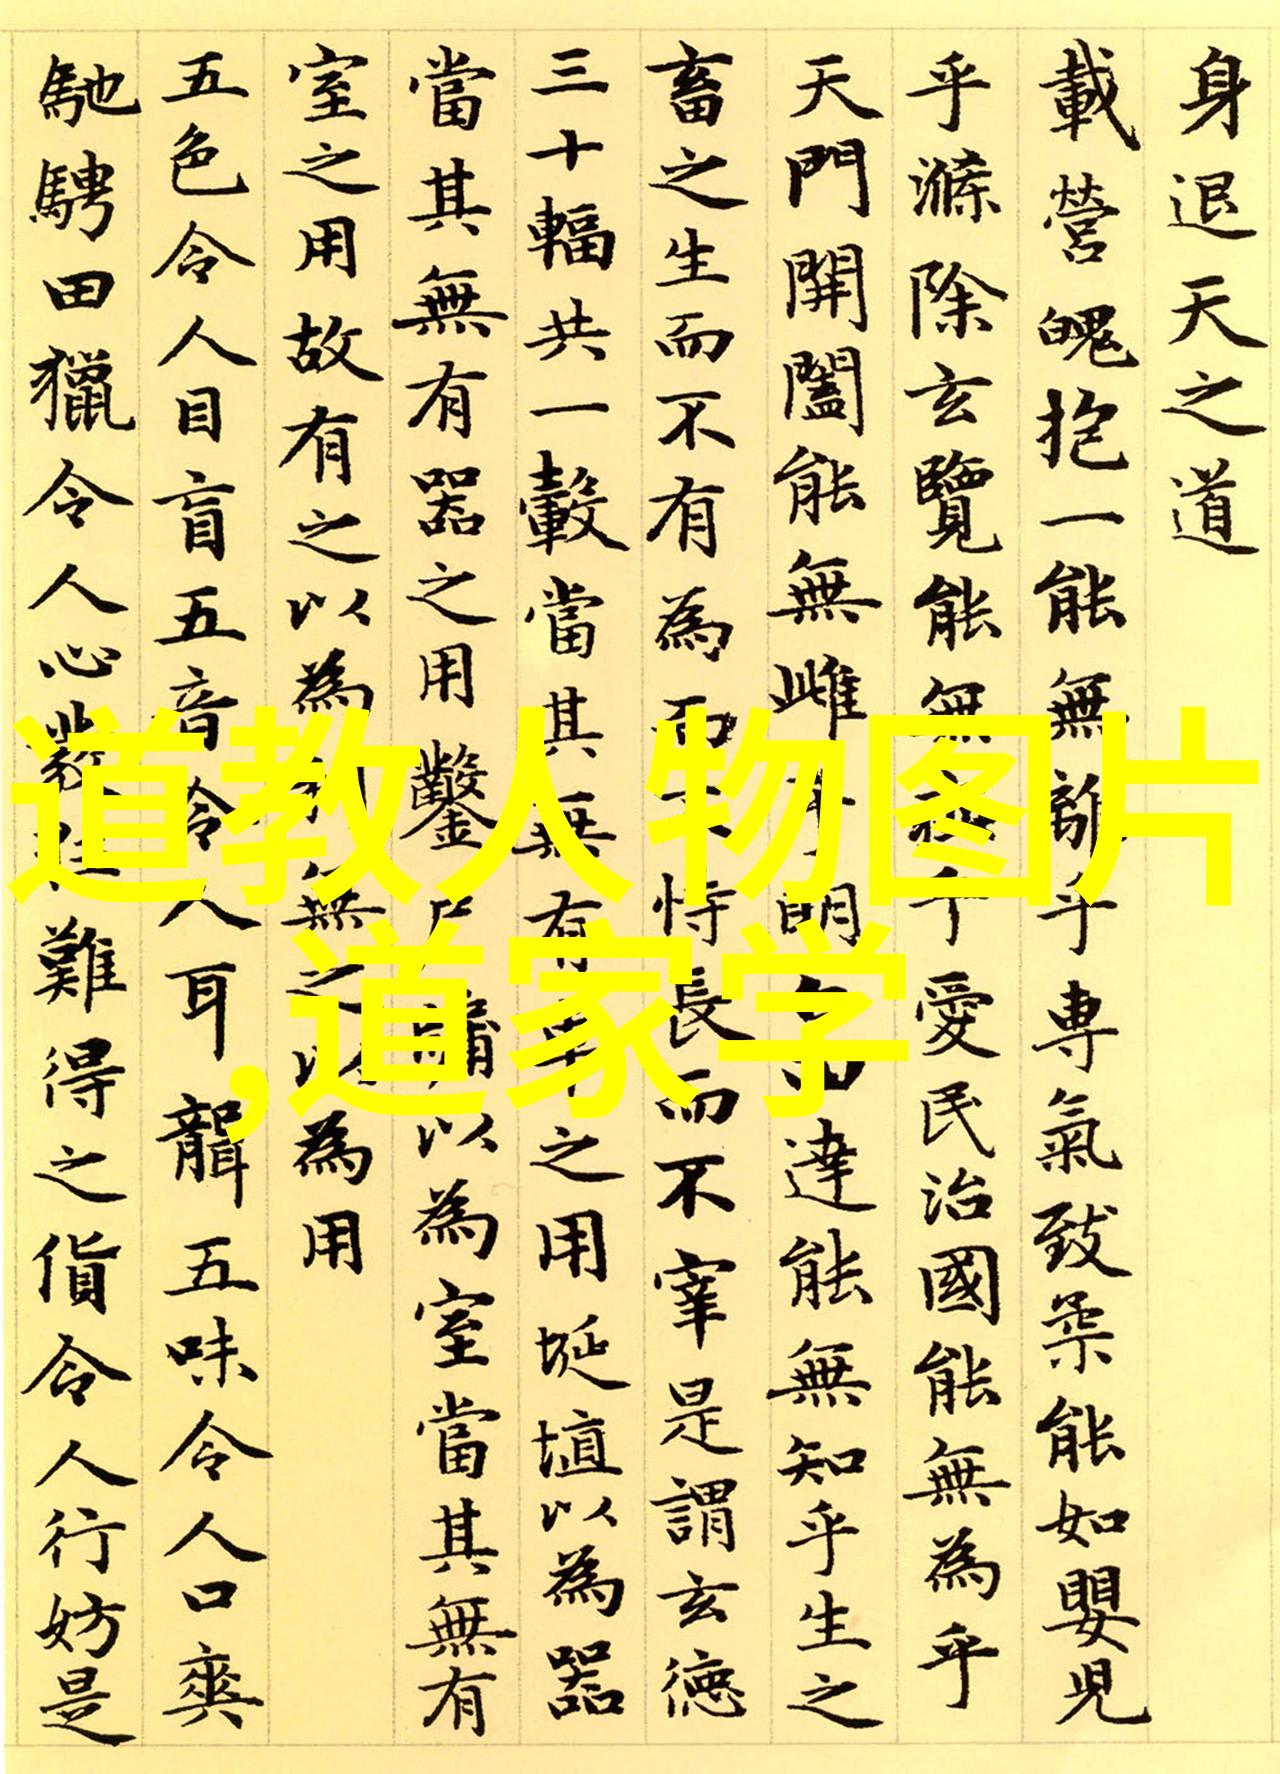 身退天之道
載營魄抱一能無離乎專氣致柔能如嬰兒
乎滌除玄覽能無疵乎愛民治國能無為乎
天門開闔能無雌乎明白四達能無知乎生之
畜之生而不有為而不恃長而不宰是謂玄德
三十輻共一轂當其無有車之用埏埴以為器
當其無有器之用鑿戶牖以為室當其無有
室之用故有之以為利無之以為用
五色令人目盲五音令人耳聾五味令人口爽
馳騁田獵令人心發狂難得之貨令人行妨是
道教人物图片
,道家学